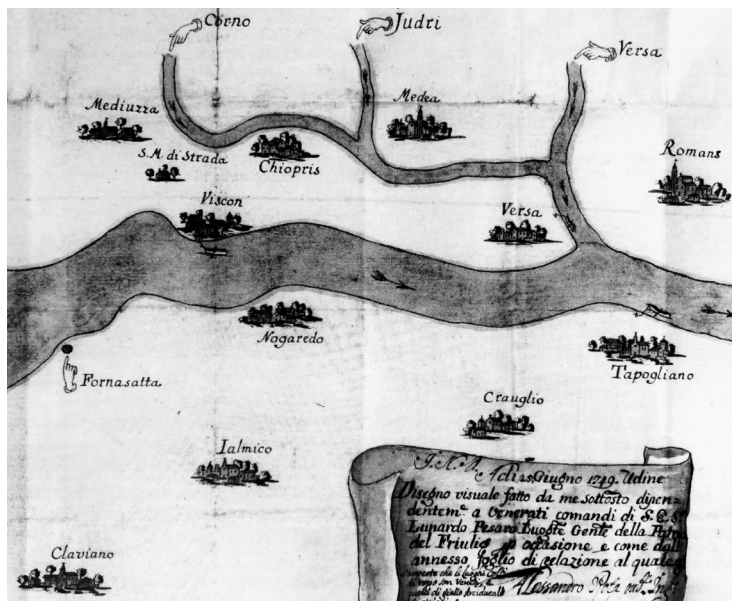 Corno
Judri
Versa
Mediuzza
Medea
S.M. di Strada
Chiopris
Romans
Viscon
Versa
Nogaredo
Fornasatta
Tapogliano
Crauglio
Ialmico
Claviano
Giugno 1749. Udine
Disegno visuale fatto da me sottosto dipen-
dentem.e a Venerati comandi di S.E. Sr
Lunardo Pesaro Luogte Gente della
del Friulis occasione e come dall
annesso foglio di relazione al quale
Alessandro